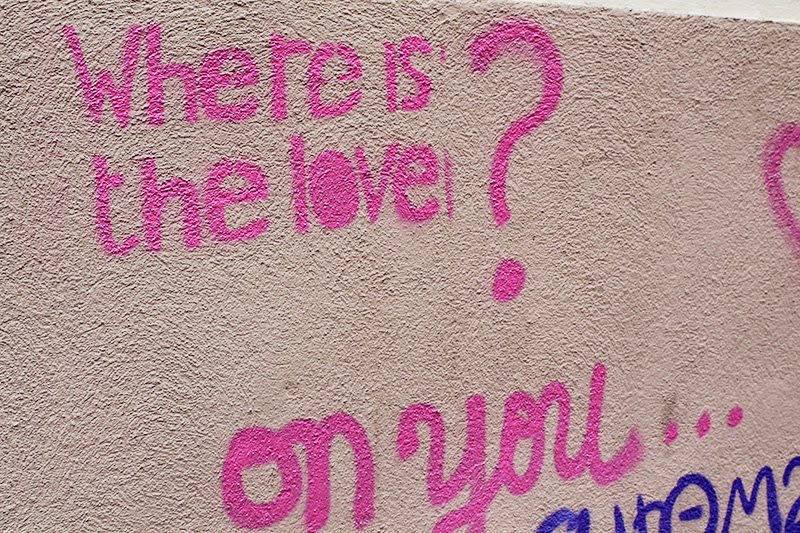 Where is
the love ?
on you...